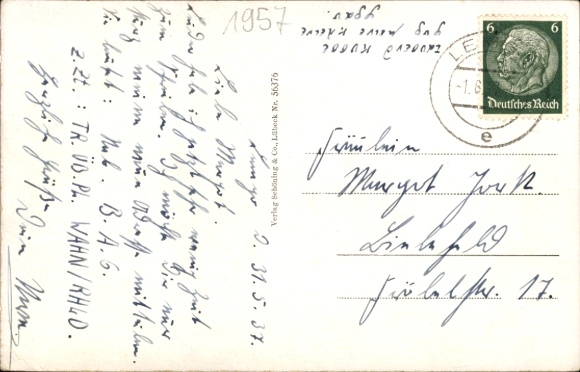 1957
Lemgo, d. 31.5.37.
Liebe Margot.
Leider habe ich jetzt sehr wenig Zeit
zum Schreiben. Ich möchte Dir nur
kurz meine neue Adresse mitteilen.
Sie lautet:
Z.Zt.: TR. ÜB. PL. WAHN/RHLD.
Herzliche Grüße
Dein
Verlag Schöning & Co., Lübeck Nr. 56376
6 6
Deutsches Reich
LE
-1.6.
e
Fräulein
Margot Jork.
Bielefeld
Fröbelstr. 17.